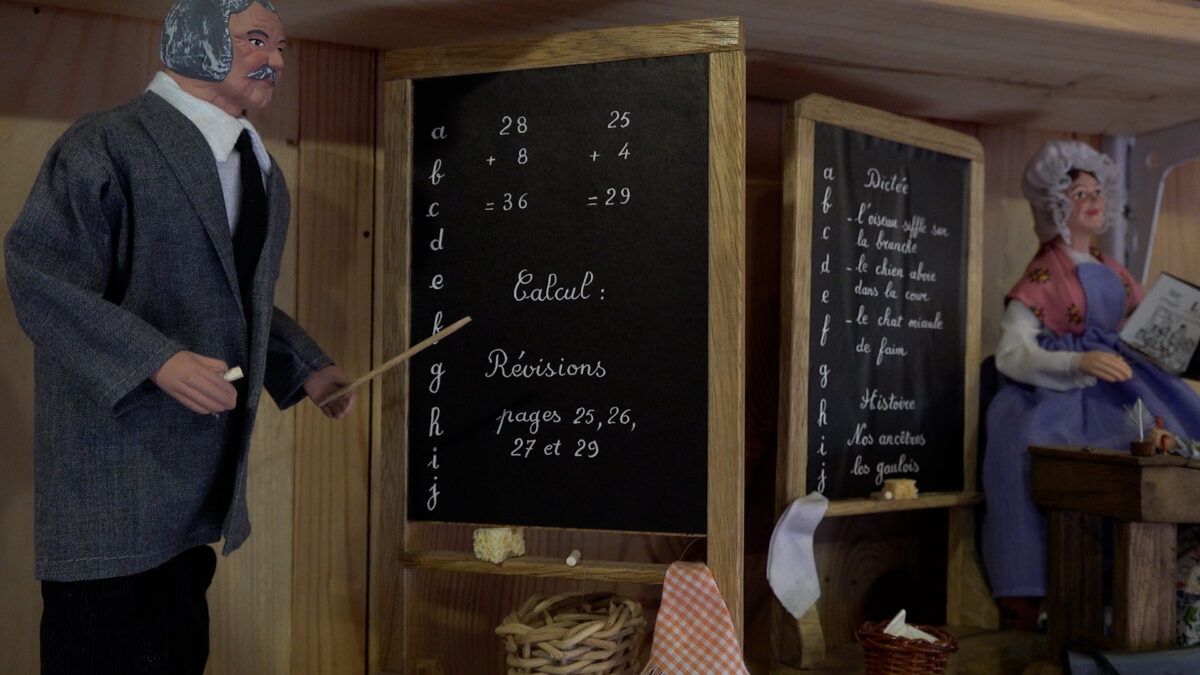 a
b
c
d
e
f
g
h
i
j
28 25
+ 8 + 4
= 36 = 29
Calcul :
Révisions
pages 25, 26,
27 et 29
a
b
c
d
e
f
g
h
i
j
Dictée
- l'oiseau siffle sur
la branche
- le chien aboie
dans la cour
- le chat miaule
de faim
Histoire
Nos ancêtres
les gaulois